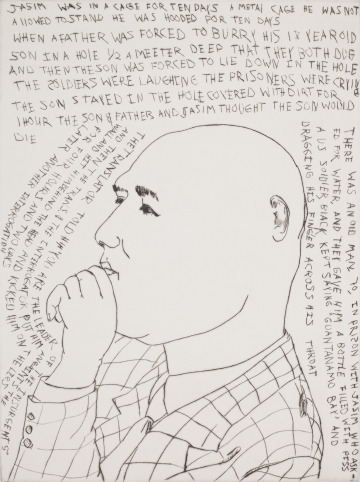 JASIM WAS IN A CAGE FOR TEN DAYS A METAL CAGE HE WAS NOT
ALLOWED TO STAND HE WAS HOODED FOR TEN DAYS
WHEN A FATHER WAS FORCED TO BURRY HIS 18 YEAROLD
SON IN A HOLE 1/2 A MEETER DEEP THAT THEY BOTH DUG
AND THEN THE SON WAS FORCED TO LIE DOWN IN THE HOLE
THE SOLDIERS WERE LAUGHING THE PRISONERS WERE CRYING
THE SON STAYED IN THE HOLE COVERED WITH DIRT FOR
1 HOUR THE SON & FATHER AND JASIM THOUGHT THE SON WOULD
DIE
THERE WAS AN OLD MAN 70, IN PRISON WITH JASIM WHO ASK-
ED FOR WATER, AND THEY GAVE HIM A BOTTLE FILLED WITH PISS
A US SOLDIER BLACK KEPT SAYING 'GUANTANAMO BAY' AND
DRAGGING HIS FINGER ACROSS HIS THROAT
THE TRANSLATOR TOLD HIM YOU ARE THE LEADER OF THE INSURGENTS
AND THEN THE TRANS. & THE INTERROGATOR PUT HIM
WALL AND HIT HIS HEAD AND KICKED HIM ON THE LEGS
FOR FOUR HOURS AND TWO
LATER ANOTHER INTERROGATION